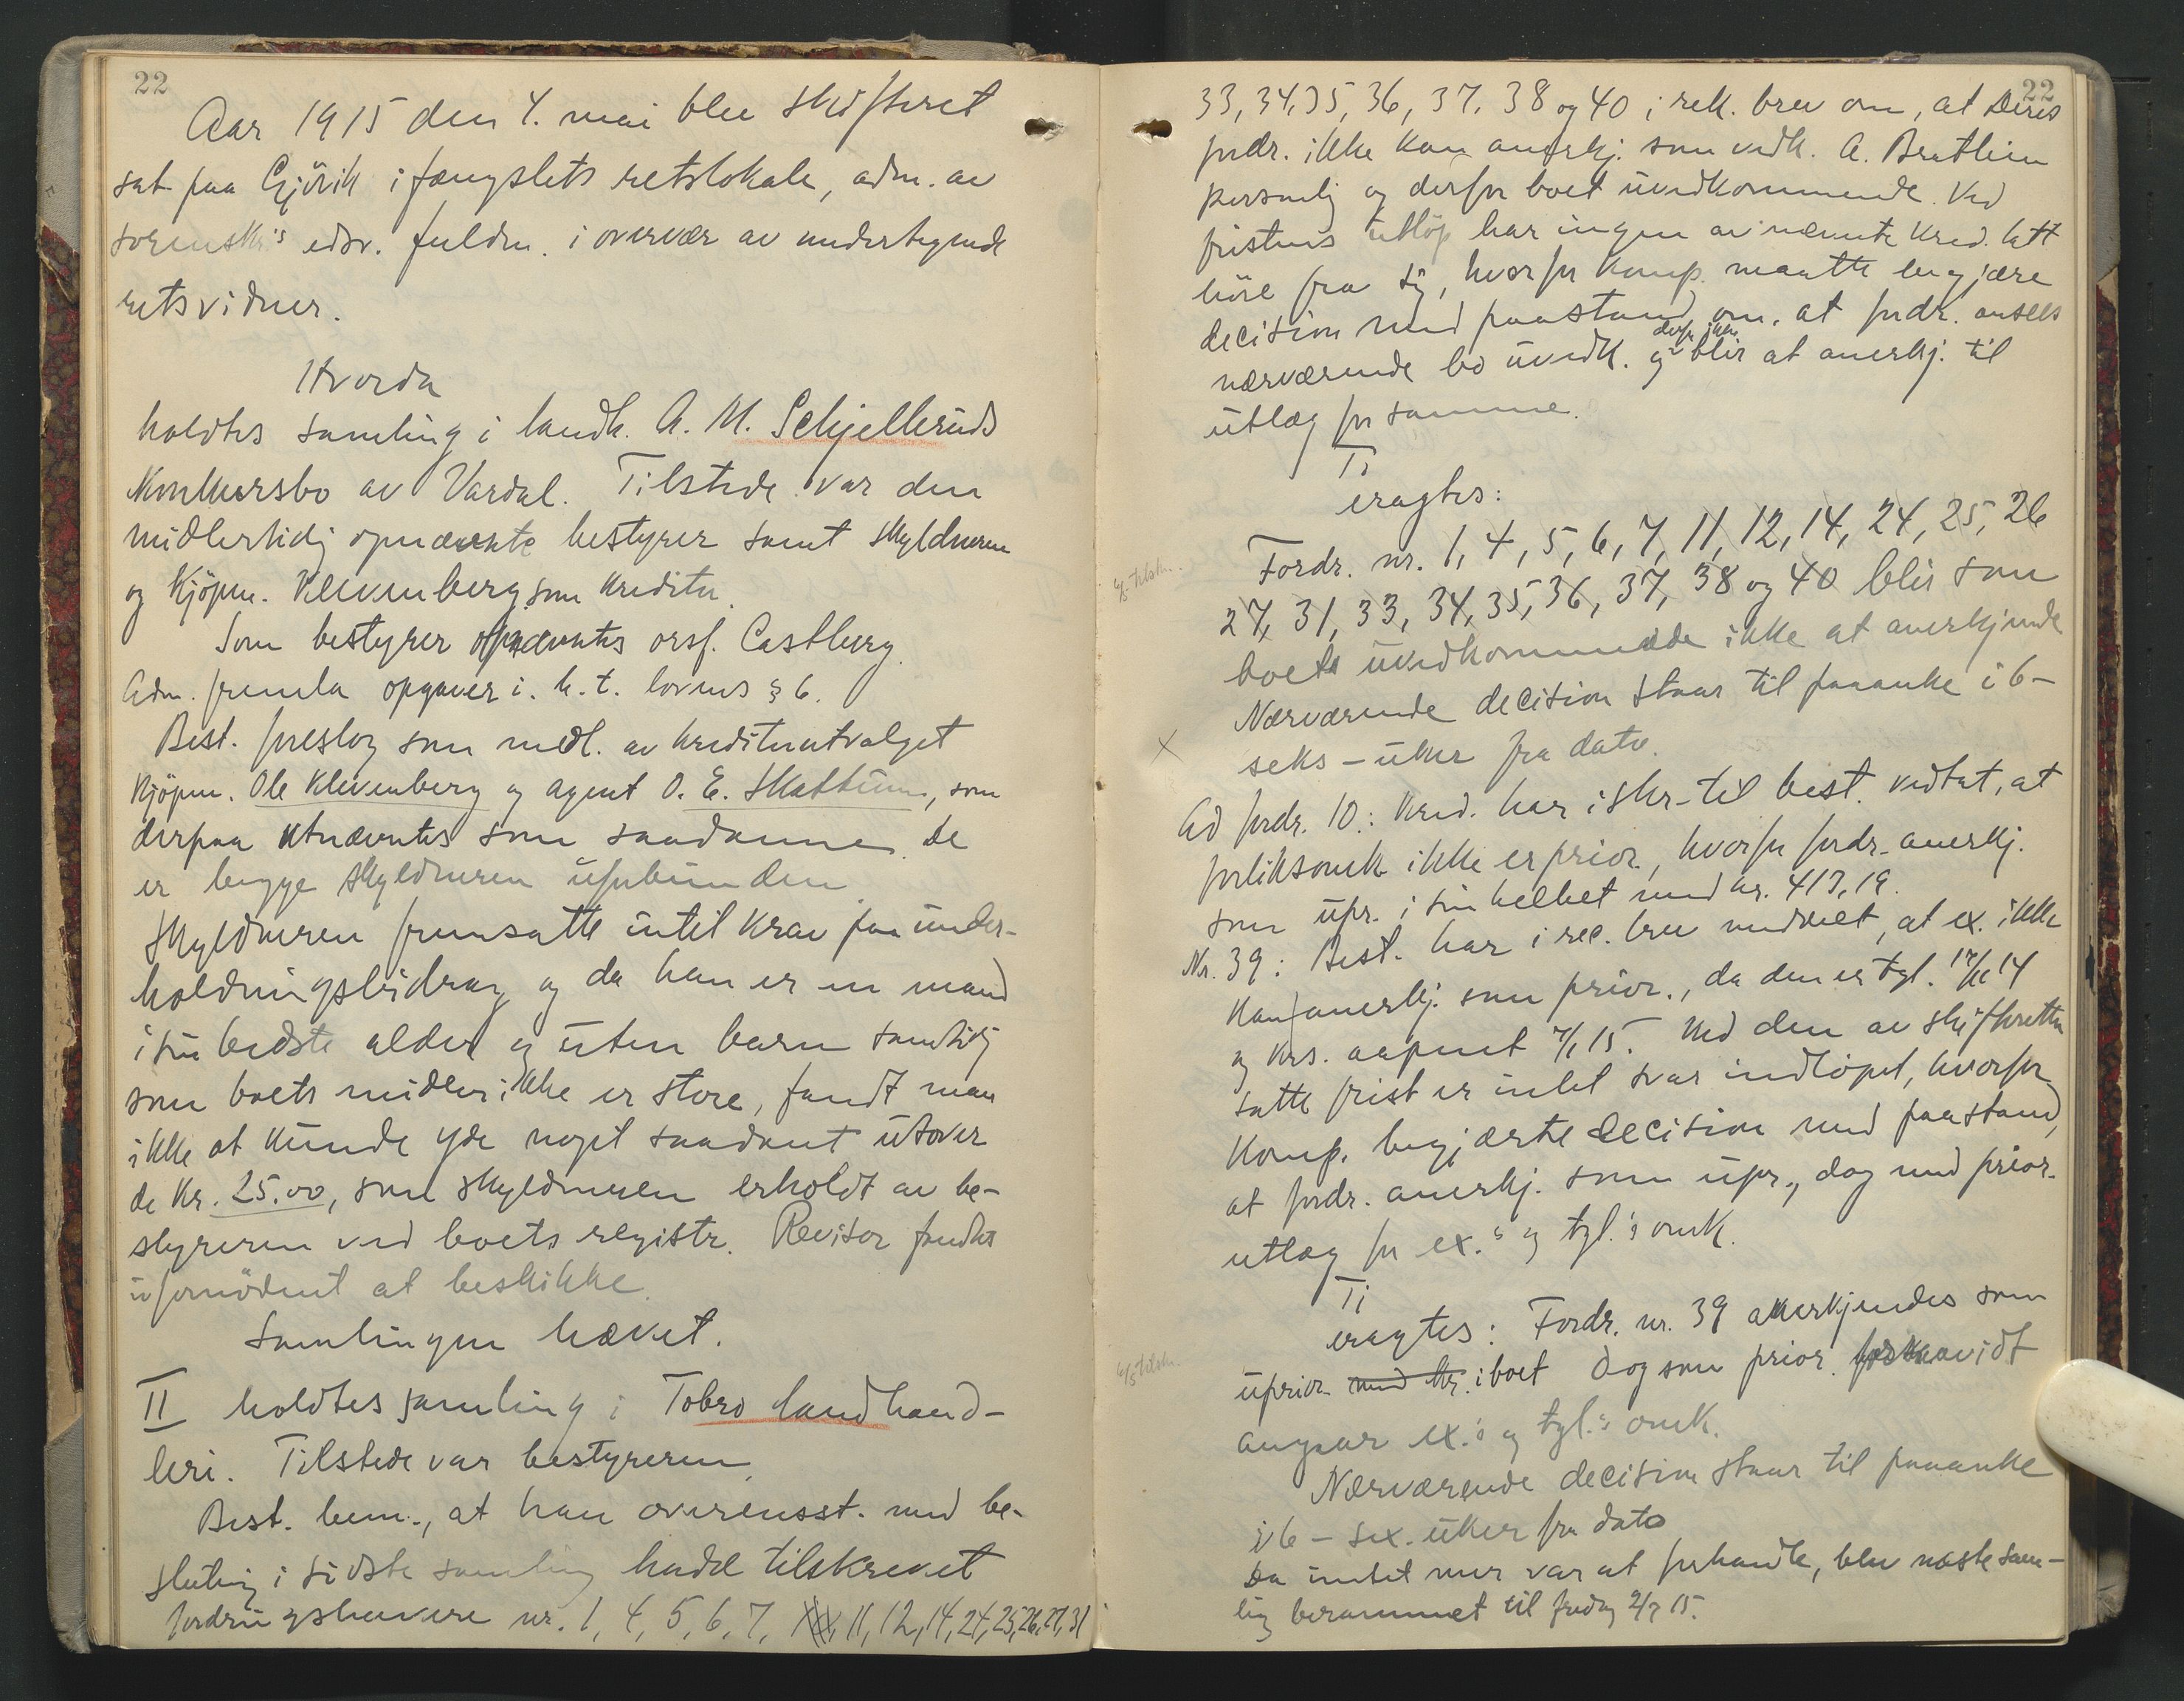 22
Aar 1915 den 4. mai blev skifteret
sat paa Gjövik i fængslets retslokale, adm. av
sorenskr's edsv. fuldm. i overvær av undertegnede
retsvidner.
Hvorda
holdtes samling i landh. A. M. Schjelleruds
konkursbo av Vardal. Tilstede var den
midlertidig opnævnte bestyrer samt skyldneren
og kjöpm. Klevenberg som kreditor.
Som bestyrer opnævntes orsf. Castberg.
Adm. fremla opgaver i. h. t. lovens § 6.
Best. foreslog som medl. av kreditorutvalget
kjöpm. Ole Klevenberg og agent O. E. Skattum, som
derpaa utnævntes som saadanne. De
er begge skyldneren uforbunden.
Skyldneren fremsatte intet krav paa under-
holdningsbidrag og da han er en mand
i sin bedste alder og uten barn samtidig
som boets midler ikke er store, fandt man
ikke at kunde yde noget saadant utover
de kr. 25.00, som skyldneren erholdt av be-
styreren ved boets registr. Revisor fandtes
ufornödent at beskikke.
Samlingen hævet.
II holdtes samling i Tobro landhand-
leri. Tilstede var bestyreren.
Best. bem., at han overensst. med be-
slutning i sidste samling hadde tilskrevet
fordringshavere nr. 1, 4, 5, 6, 7, 11, 12, 14, 24, 25, 26, 27, 31
22
33, 34, 35, 36, 37, 38 og 40 i rek. brev om, at Deres
fordr. ikke kan anerkj. som vedk. A. Bratlien
personlig og derfor boet uvedkommende. Ved
fristens utlöp har ingen av nævnte kred. latt
höre fra sig, hvorfor komp. maatte begjære
decision med paastand om, at fordr. ansees
derfor ikke
nærværende bo uvedk. og blir at anerkj. til
utlæg for samme.
Ti
eragtes:
Fordr. nr. 1, 4, 5, 6, 7, 11, 12, 14, 24, 25, 26
27, 31, 33, 34, 35, 36, 37, 38 og 40 blir som
boet uvedkommende ikke at anerkjende
Nærværende decision staar til paaanke i 6 –
seks – uker fra dato.
Ad fordr. 10: Kred. har i skr. til best. vedtat, at
forliksomk. ikke er prior., hvorfor fordr. anerkj.
som upr. i sin helhet med kr. 413,19.
Nr. 39: Best. har i rec. brev meddelt, at ex. ikke
kan anerkj. som prior., da den er tgl. 14
og krs. aapnet 15. Ved den av skifteretten
satte frist er intet svar indlöpet, hvorfor
komp. begjærte decision med paastand,
at fordr. anerkj. som upr., dog med prior.
utlæg for ex.'s og tgl.'s omk.
Ti
eragtes: Fordr. nr. 39 anerkjendes som
uprior. med kr. i boet dog som prior. forsaavidt
angaar ex.'s og tgl.'s omk.
Nærværende decision staar til paaanke
i 6 – sex – uker fra dato
Da intet mer var at forhandle, blev næste sam-
ling berammet til fredag 2/7 15.